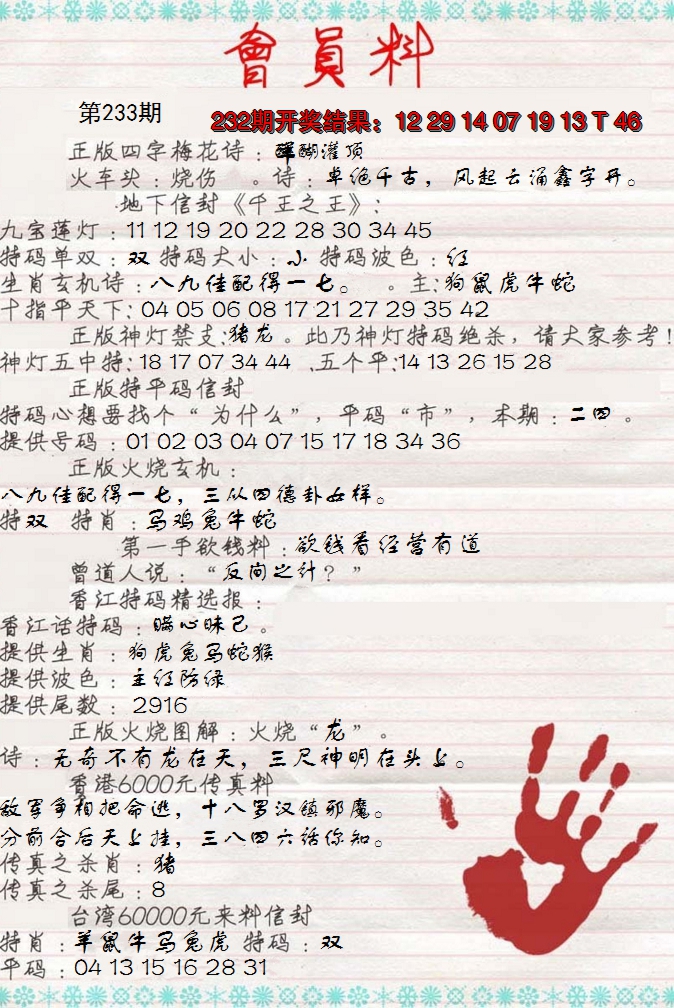 會員料
第233期
232期开奖结果：12 29 14 07 19 13 T 46
正版四字梅花诗：醍醐灌顶
火车头：烧伤 。诗：卓绝千古，风起云涌鑫字开。
·地下信封《千王之王》：
九宝莲灯：11 12 19 20 22 28 30 34 45
特码单双：双 特码大小：小 特码波色：红
生肖玄机诗：八九佳配得一七。 。主：狗鼠虎牛蛇
十指平天下：04 05 06 08 17 21 27 29 35 42
正版神灯禁支：猪龙。此乃神灯特码绝杀，请大家参考！
神灯五中特：18 17 07 34 44 .五个平：14 13 26 15 28
正版特平码信封
特码心想要找个“为什么”，平码“市”，本期：二四。
提供号码：01 02 03 04 07 15 17 18 34 36
正版火烧玄机：
八九佳配得一七，三从四德卦女样。
特双 特肖：马鸡兔牛蛇
第一手欲钱料：欲钱看经营有道
曾道人说：“反间之计？”
香江特码精选报：
香江话特码：瞒心昧己。
提供生肖：狗虎兔马蛇猴
提供波色：主红防绿
提供尾数：2916
正版火烧图解：火烧“龙”。
诗：无奇不有龙在天，三尺神明在头上。
香港6000元传真料
敌军争相把命逃，十八罗汉镇邪魔。
分前合后天上挂，三八四六话你知。
传真之杀肖：猪
传真之杀尾：8
台湾60000元来料信封
特肖：羊鼠牛马兔虎 特码：双
平码：04 13 15 16 28 31